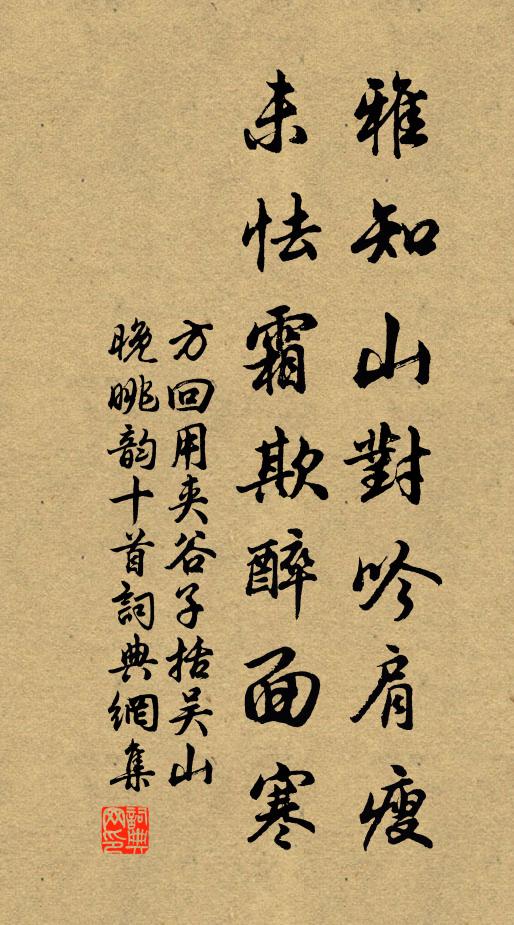 雅知山對吟肩瘦
未怯霜欺醉面寒
方回用夹谷子括吴山
晚眺韵十首詞典網集
詞典网印